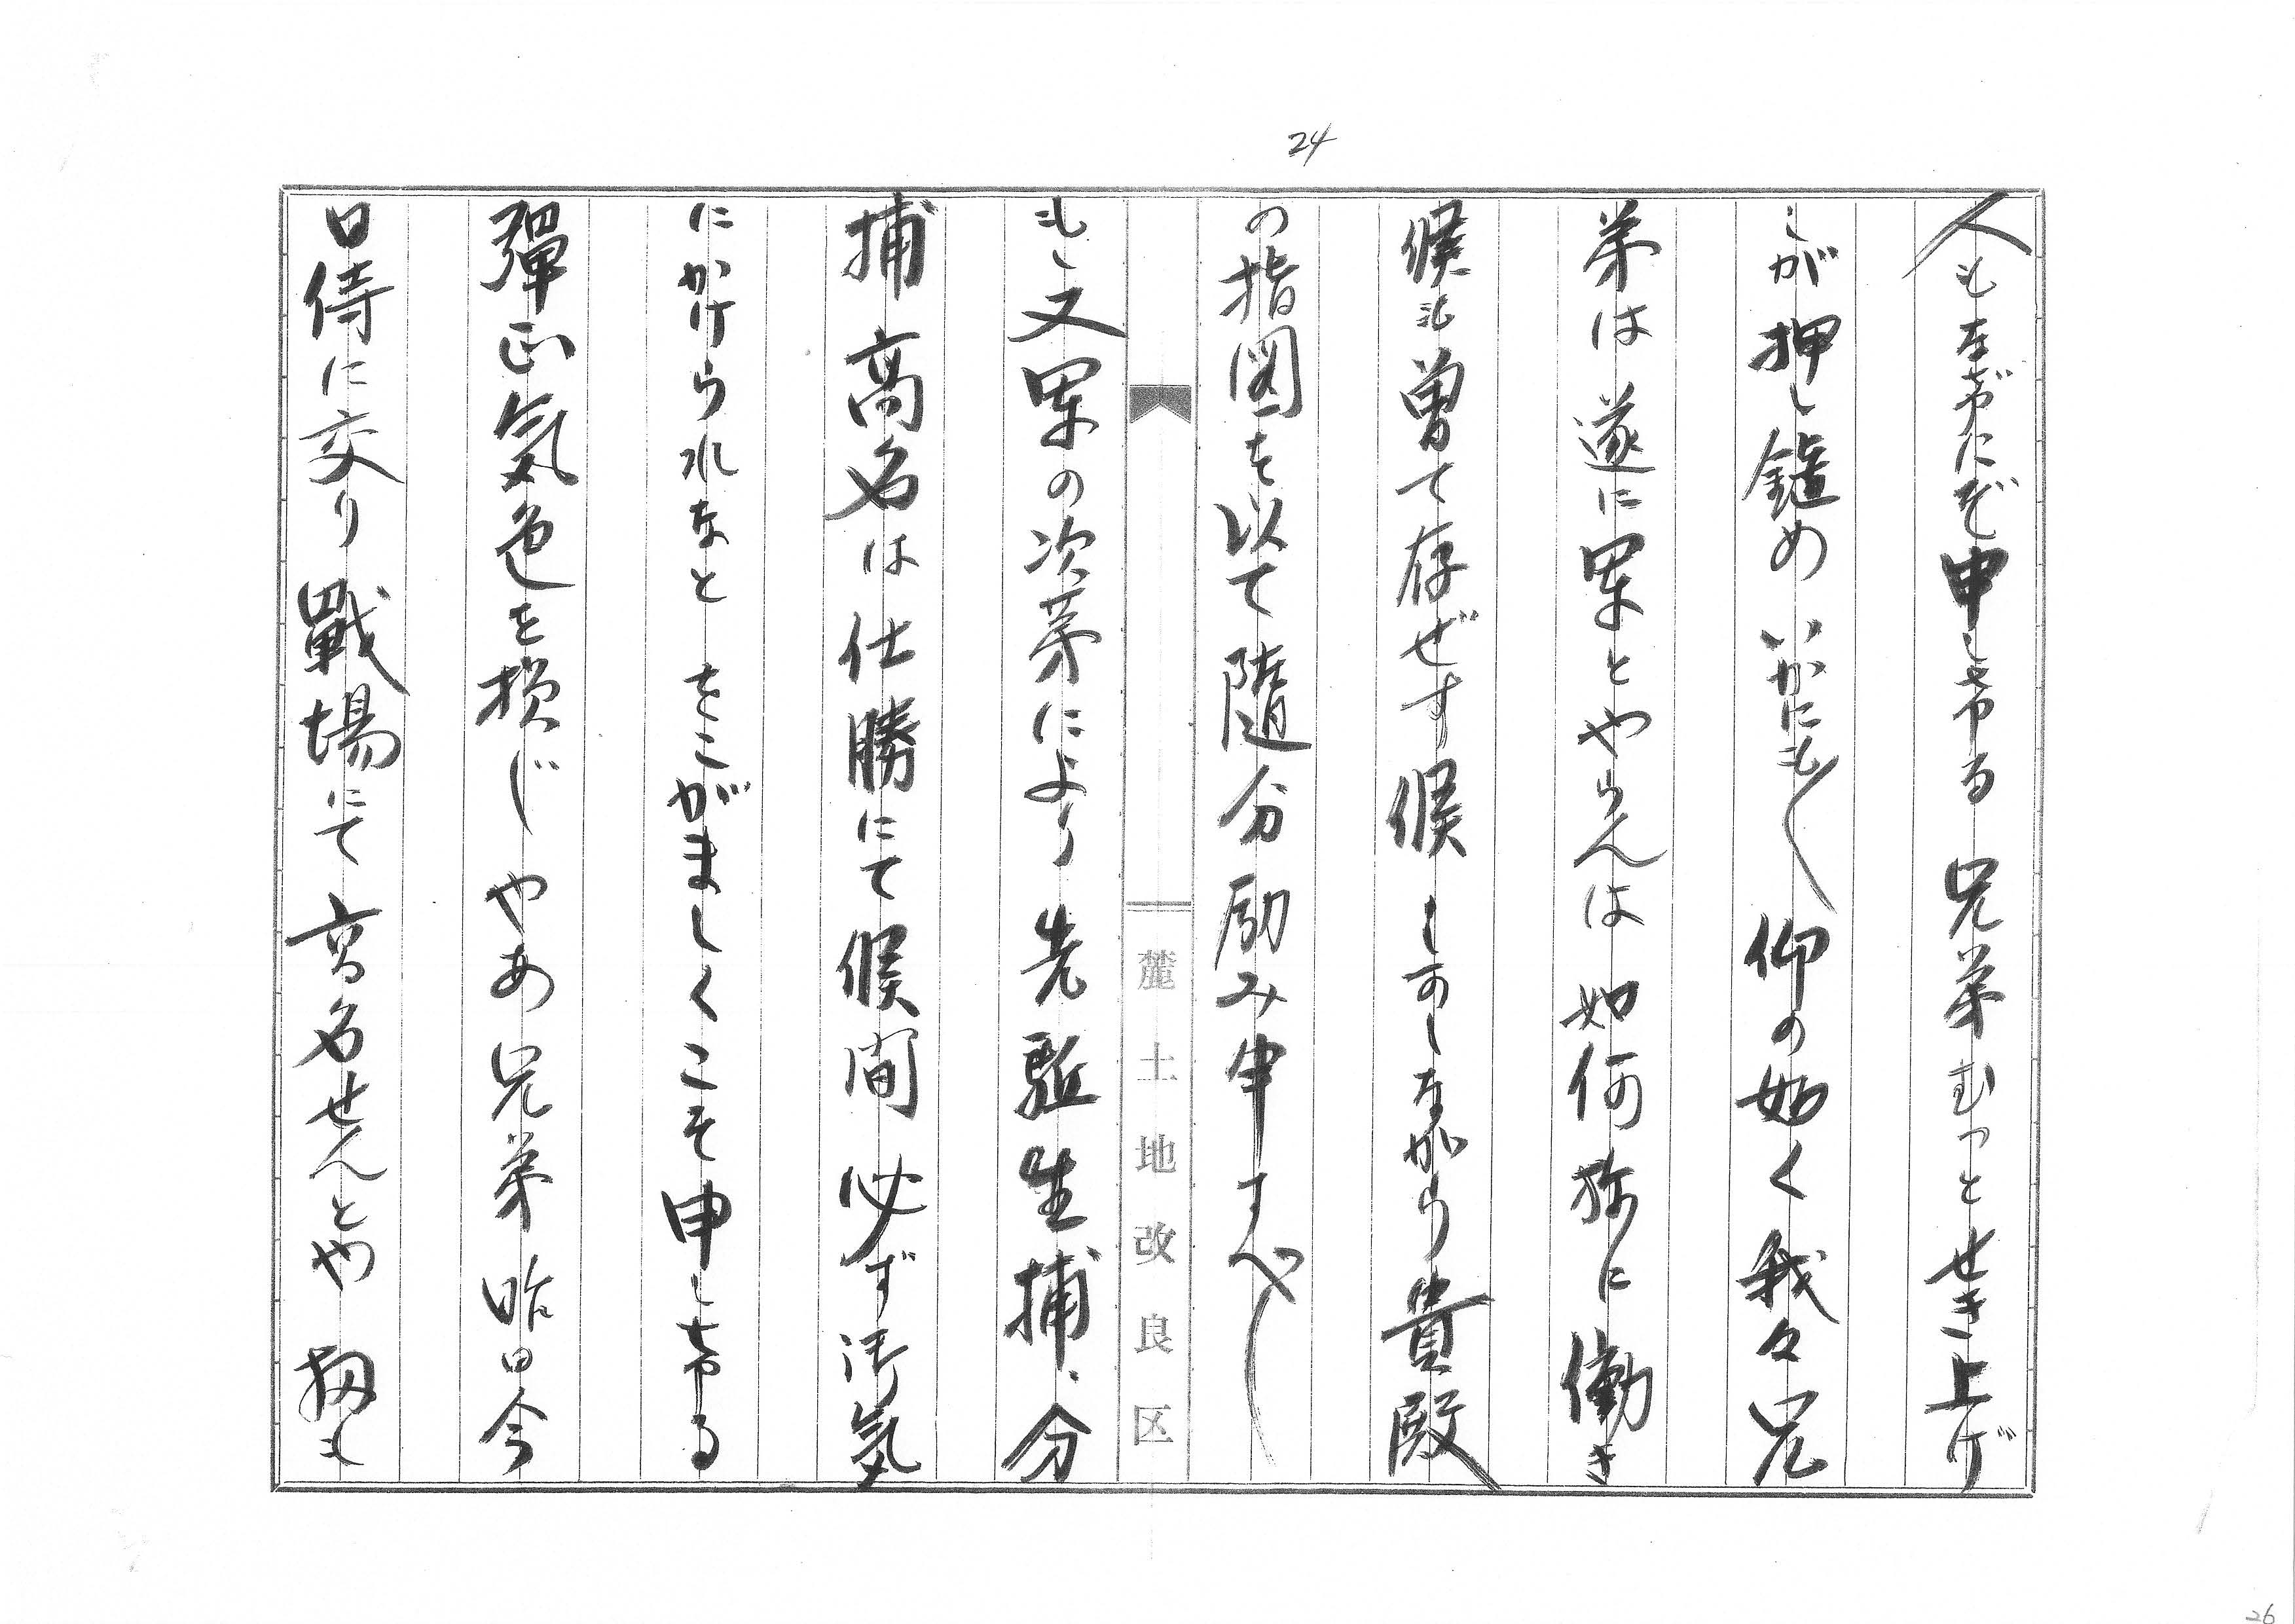 24
人もなげにぞ申しさやる 兄弟むっとせき上げ
しが押し鎮め いかにも〱 仰の如く我々兄
弟は遂に軍とやらんは 如何様に働き
候も曽て存ぜす候 しかしながら貴殿
の指図を以て随分励み申すべし
もし又軍の次第により 先駈生捕、分
捕高名は仕勝にて候間 必ず御気
にかけられなと をこがましくこそ申しさやる
彈正気色を損じ やあ兄弟 昨日今
日侍に交り 戰場にて 高名せんとや 扨も
麓土地改良区
26